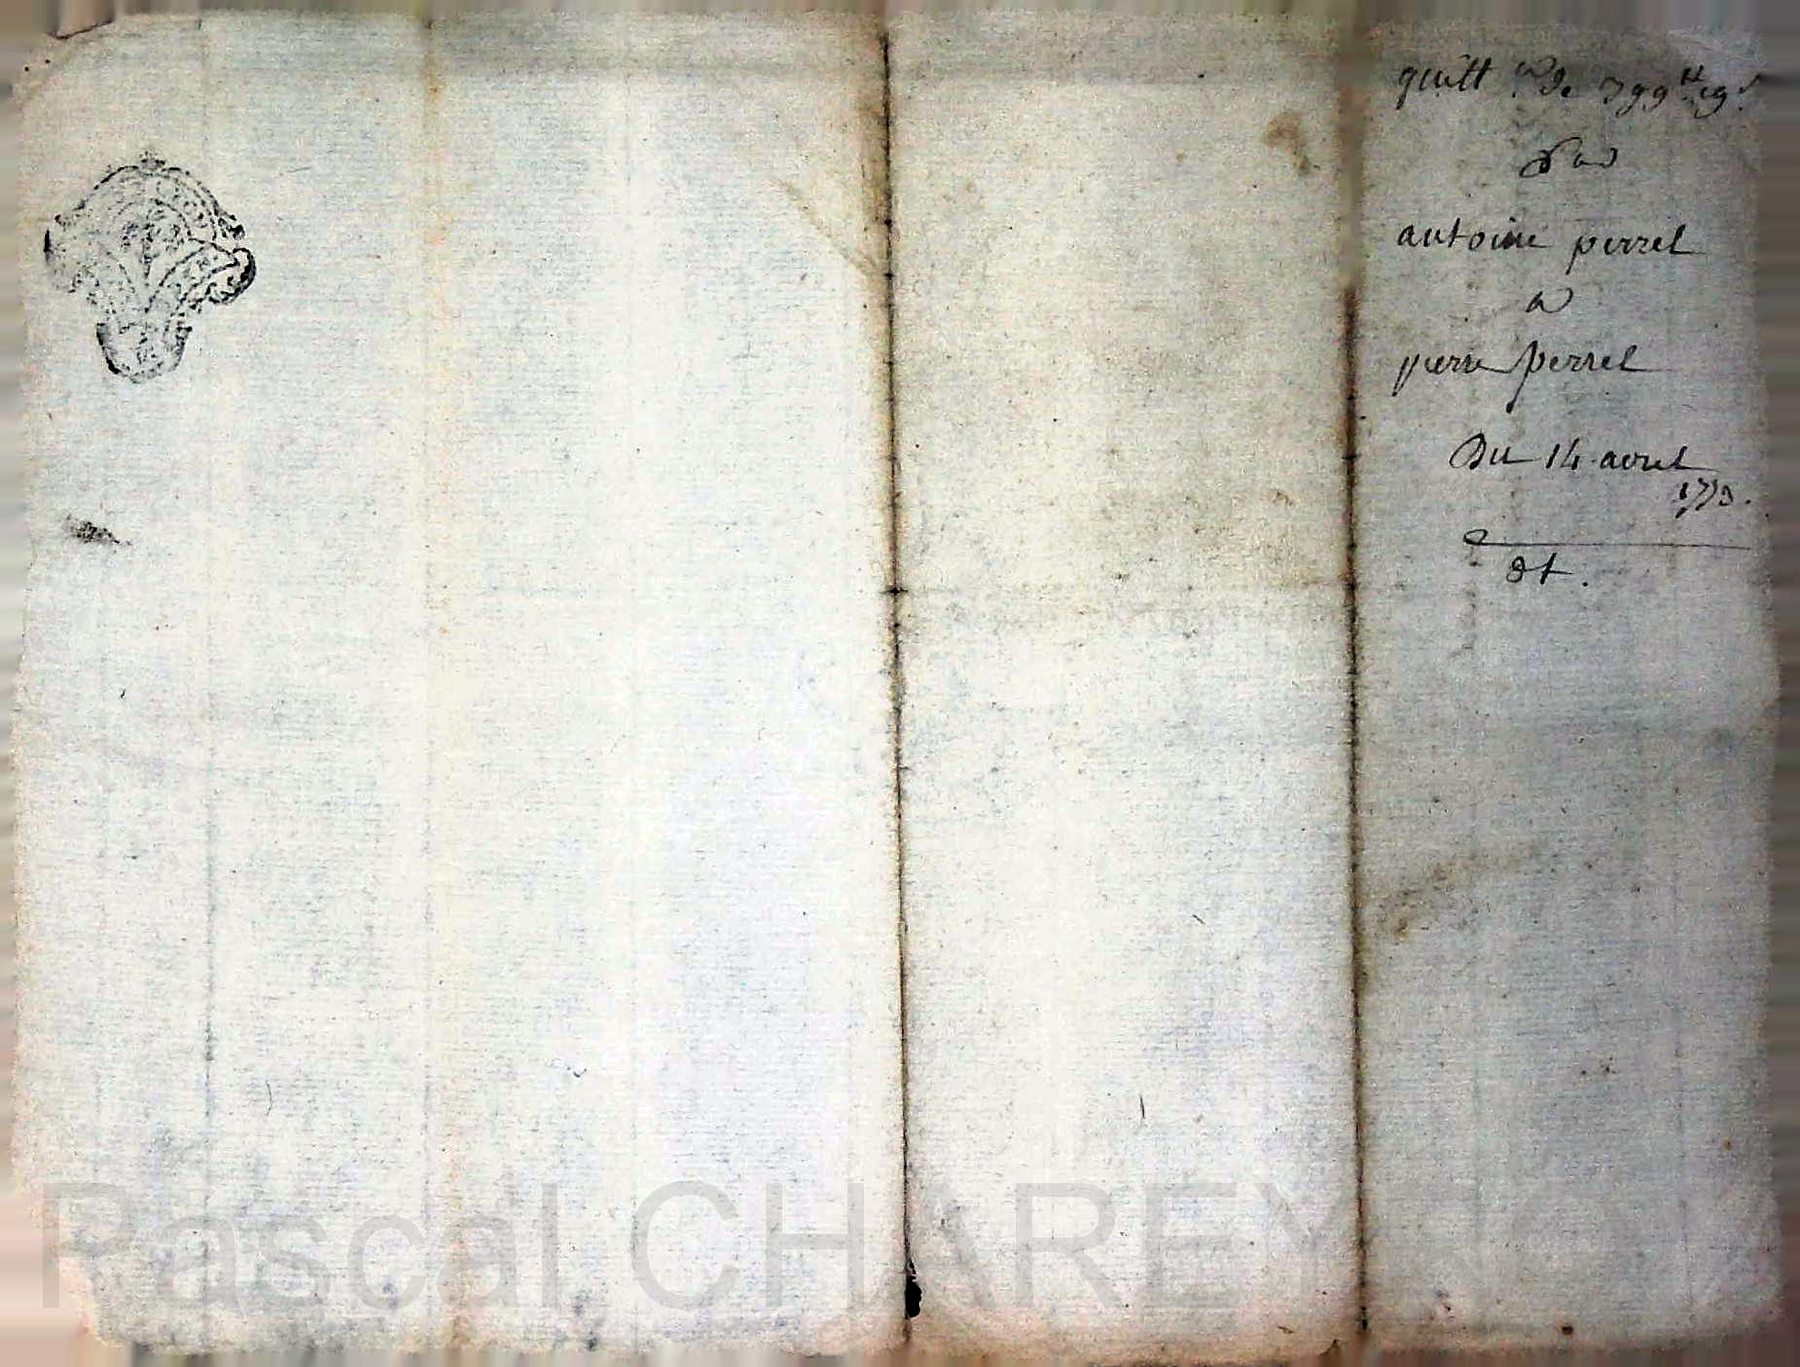 quitt ce de 799 ₶ 19 s.
Par
antoine perret
a
pierre perret
Du 14 avril
1773.
dt.
Pascal CHAREY